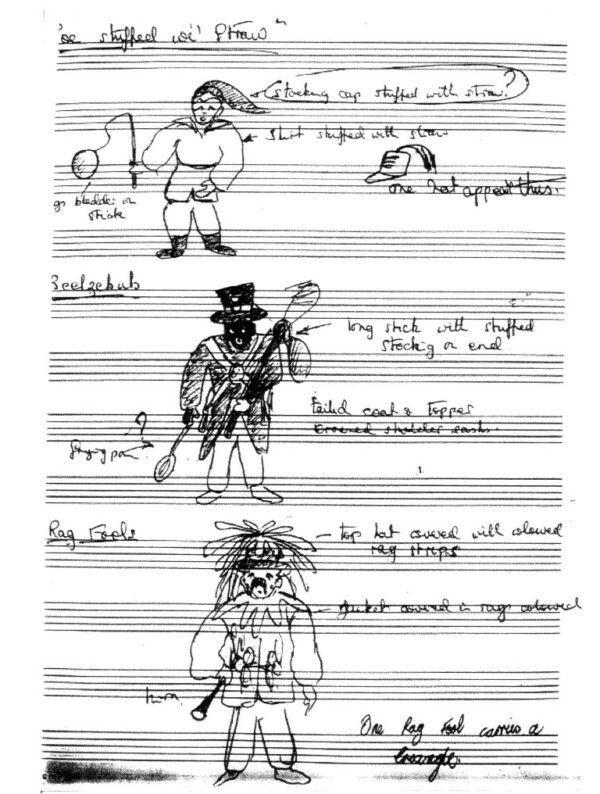 'oe stuffed wi' Straw"
Stocking cap stuffed with straw?
Shirt stuffed with straw
one hat appeal thus.
gs bladder on
stick
Beelzebub
long stick with stuffed
stocking on end
Tailed coat & Topper
Crossed shoulder sash.
?
frying pan
Rag Fools
top hat covered with coloured
rag strips
Jacket covered in rags coloured
horn
One Rag Fool carries a
triangle.